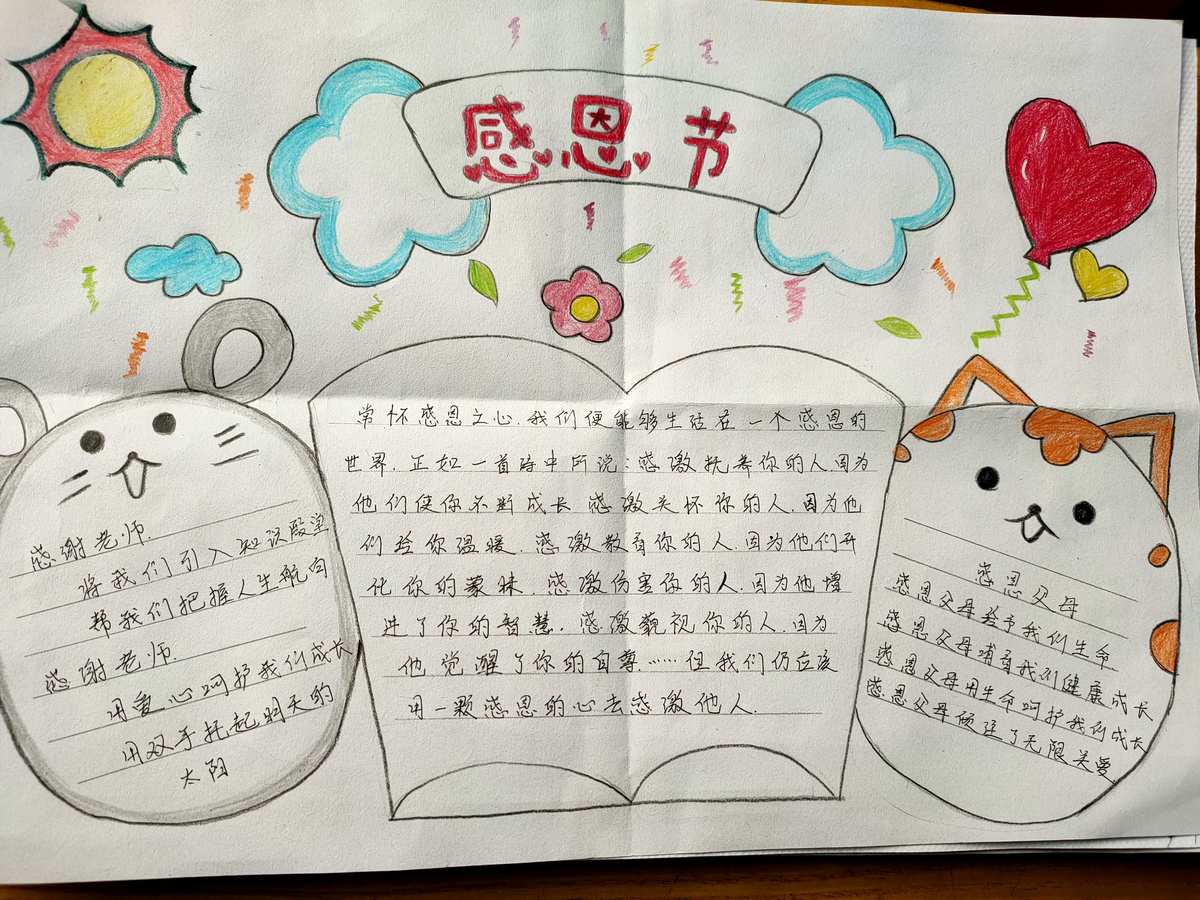 感恩节
感谢老师.
将我们引入知识殿堂
帮我们把握人生航向
感谢老师.
用爱心呵护我们成长
用双手托起明天的
太阳
常怀感恩之心.我们便能够生活在一个感恩的
世界.正如一首诗中所说:感激抚养你的人.因为
他们使你不断成长 感激关怀你的人.因为他
们给你温暖.感激教育你的人.因为他们开
化你的蒙昧.感激伤害你的人.因为他增
进了你的智慧.感激藐视你的人.因为
他觉醒了你的自尊……但我们仍应该
用一颗感恩的心去感激他人.
感恩父母
感恩父母给予我们生命
感恩父母哺育我们健康成长
感恩父母用生命呵护我们成长
感恩父母倾注了无限关爱.